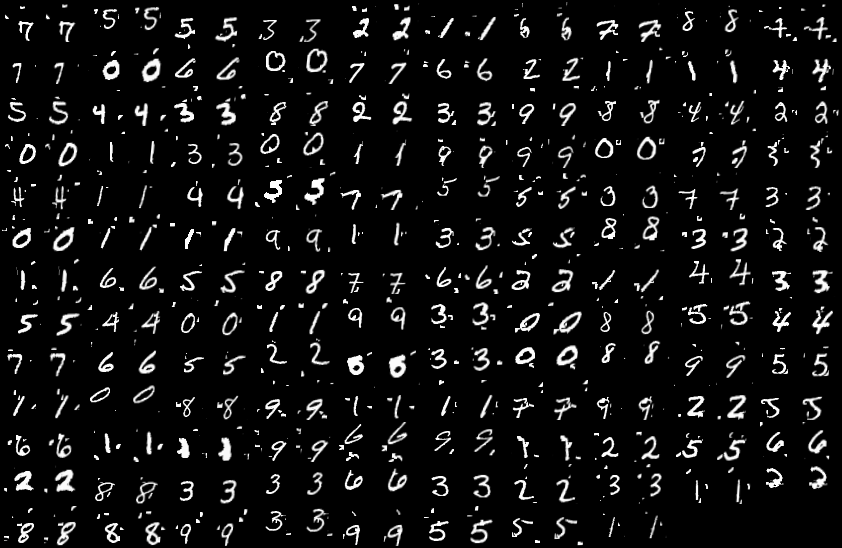 7 7 5 5 5 5 3 3 2 2 1 1 6 6 7 7 8 8 7 7
7 7 0 0 6 6 0 0 7 7 6 6 2 2 1 1 1 1 4 4
5 5 4 4 3 3 8 8 2 2 3 3 9 9 8 8 4 4 2 2
0 0 1 1 3 3 0 0 1 1 9 9 9 9 0 0 7 7 3 3
4 4 1 1 4 4 5 5 7 7 5 5 5 5 3 3 7 7 3 3
0 0 1 1 1 1 9 9 1 1 3 3 5 5 8 8 3 3 2 2
1 1 6 6 5 5 8 8 7 7 6 6 2 2 1 1 4 4 3 3
5 5 4 4 0 0 1 1 9 9 3 3 0 0 8 8 5 5 4 4
7 7 6 6 5 5 2 2 6 6 3 3 0 0 8 8 9 9 5 5
1 1 0 0 8 8 9 9 1 1 1 1 7 7 9 9 2 2 5 5
6 6 1 1 1 1 9 9 6 6 9 9 1 1 2 2 5 5 6 6
2 2 8 8 3 3 3 3 6 6 3 3 2 2 3 3 1 1 2 2
8 8 8 8 9 9 3 3 9 9 5 5 5 5 1 1